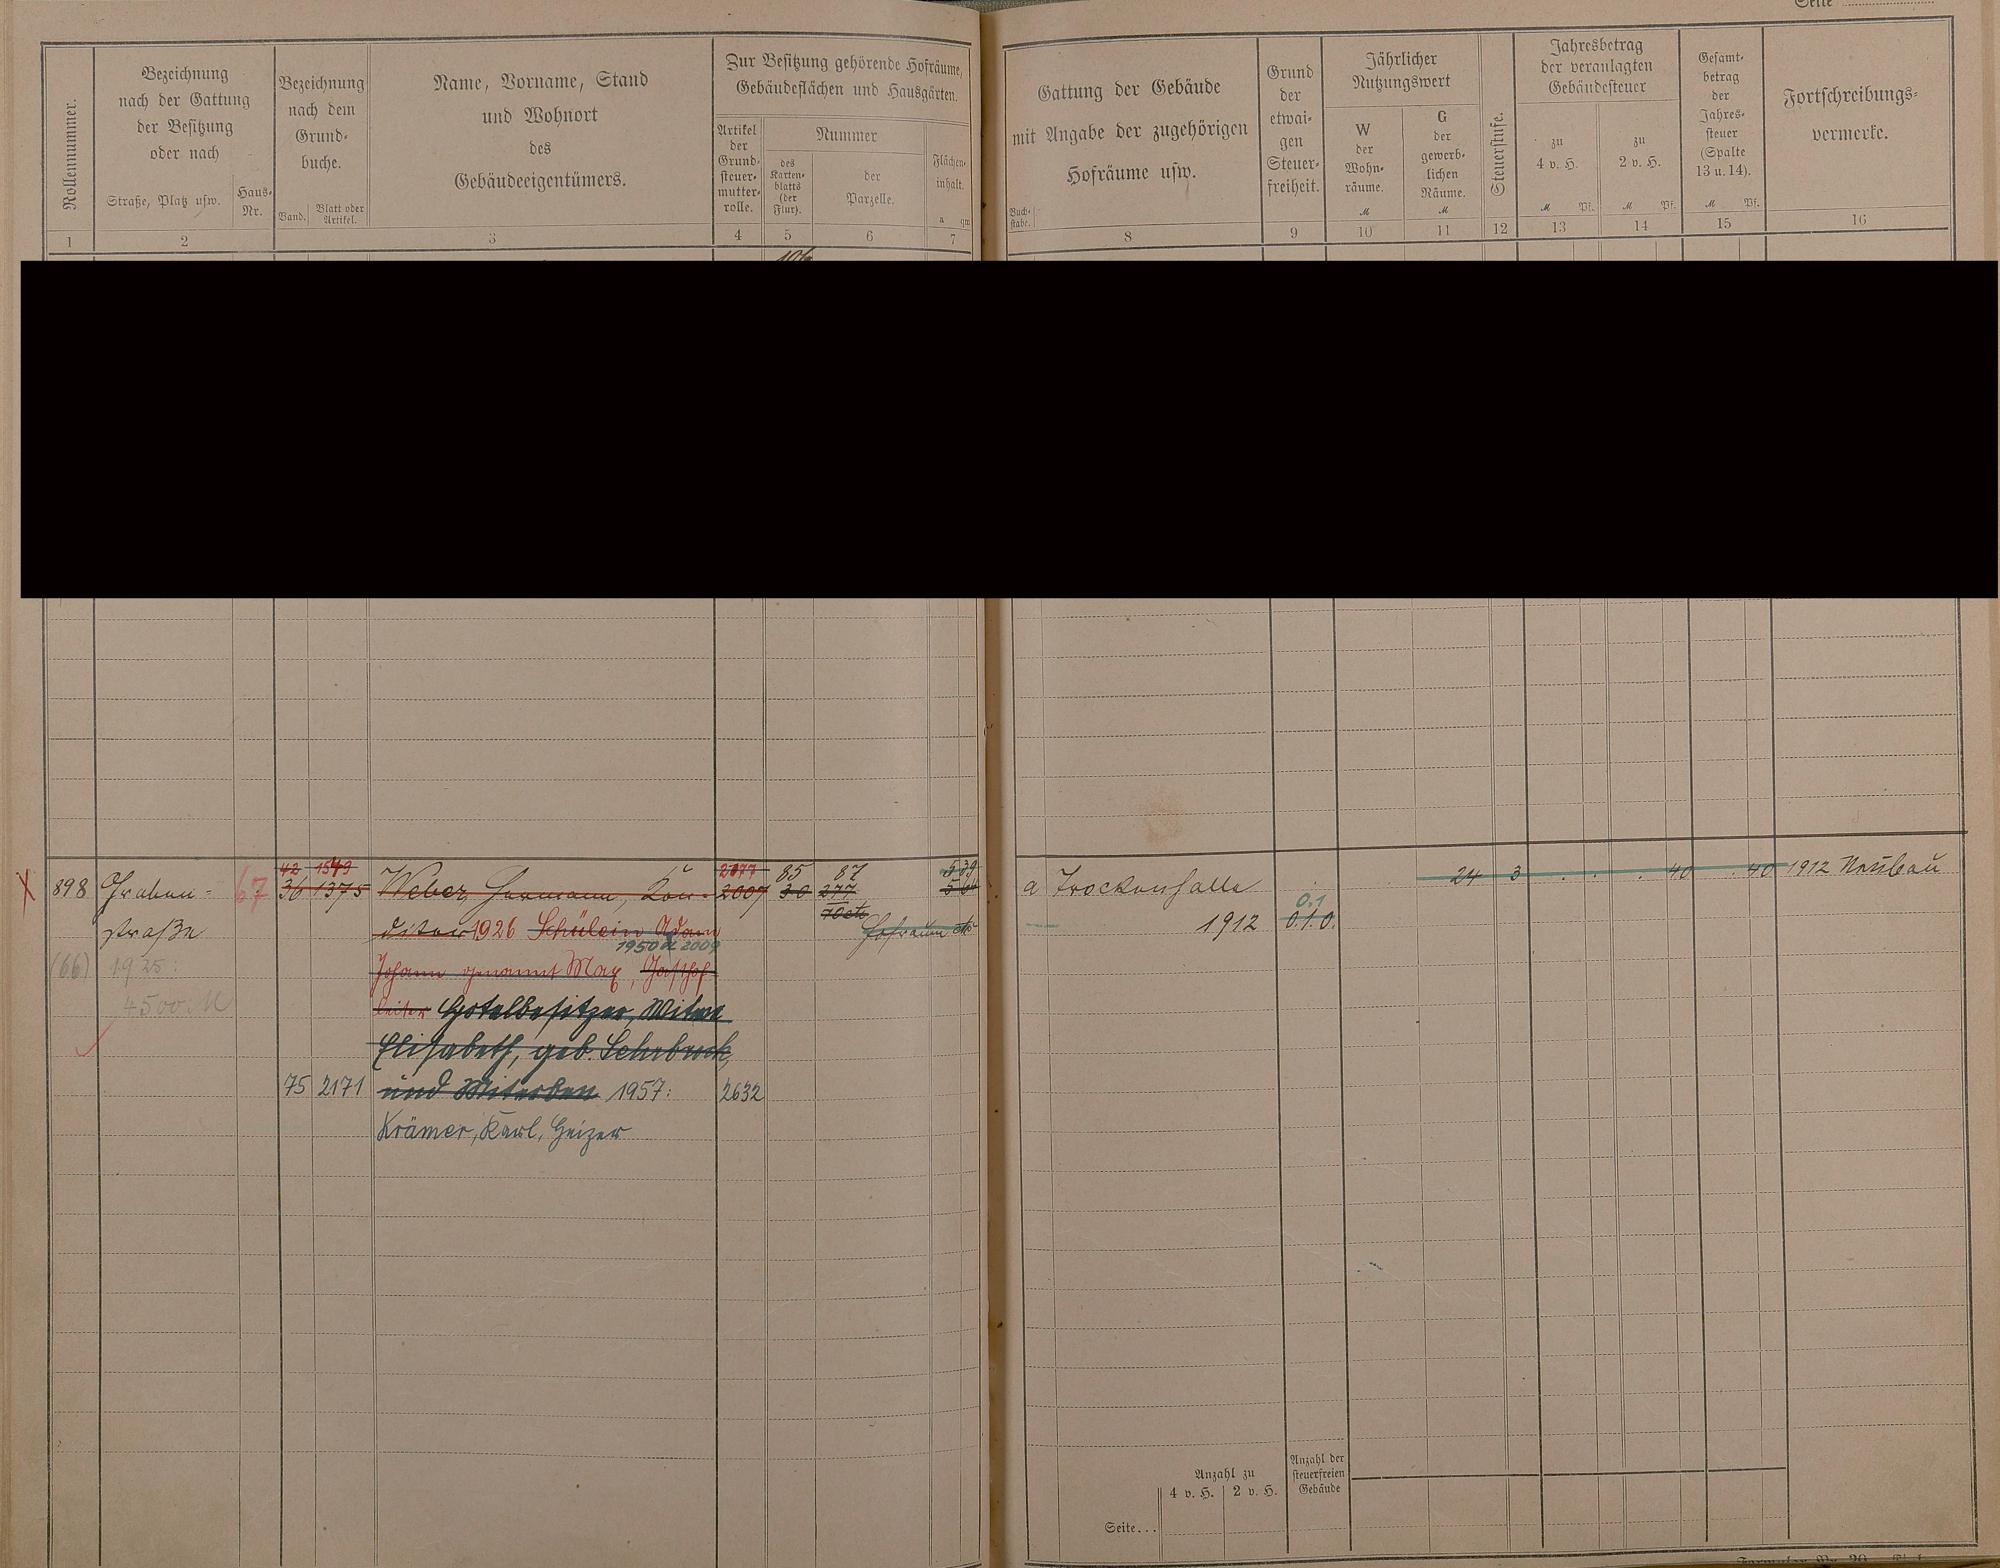 Seite
Rollennummer.
Bezeichnung
nach der Gattung
der Besitzung
oder nach
Straße, Platz usw.
Haus-
Nr.
Bezeichnung
nach dem
Grund-
buche.
Band.
Blatt oder
Artikel.
Name, Vorname, Stand
und Wohnort
des
Gebäudeeigentümers.
Zur Besitzung gehörende Hofräume,
Gebäudeflächen und Hausgärten.
Artikel
der
Grund-
steuer-
mutter-
rolle.
Nummer
des
Karten-
blatts
(der
Flur).
der
Parzelle.
Flächen-
inhalt.
a qm
1 2 3 4 5 6 7
Gattung der Gebäude
mit Angabe der zugehörigen
Hofräume usw.
Buch-
stabe.
Grund
der
etwai-
gen
Steuer-
freiheit.
Jährlicher
Nutzungswert
W
der
Wohn-
räume.
M
G
der
gewerb-
lichen
Räume.
M
Steuerstufe.
Jahresbetrag
der veranlagten
Gebäudesteuer
zu
4 v. H.
M Pf.
zu
2 v. H.
M Pf.
Gesamt-
betrag
der
Jahres-
steuer
(Spalte
13 u. 14).
M Pf.
Fortschreibungs-
vermerke.
8 9 10 11 12 13 14 15 16
42 1549 2077 85 87 5 39
898 Graben- 67 36 1375 Weber, Hermann, Kon- 2007 30 277
straße ditor 1926 Schülein Adam Hofraum etc
1950 2009
(66) 1925: Johann genannt Max, Gasthof-
4500 M leiter Hotelbesitzer, Witwe
Elisabeth, geb. Schrbrock,
75 2171 und Miterben 1957: 2632
Krämer, Karl, Heizer
a Trockenhalle 24 3 . . . 40 . 40 1912 Neubau
0.1
1912 0.1.0.
Anzahl zu
4 v. H. 2 v. H.
Anzahl der
steuerfreien
Gebäude
Seite...